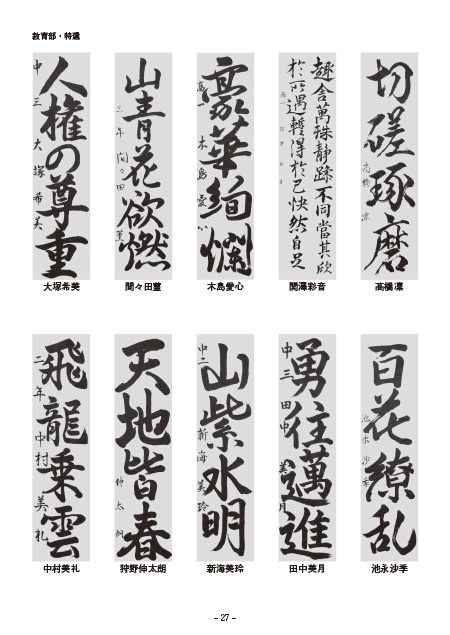 教育部・特選
切磋琢磨
高橋凛
趣舎萬殊静躁不同當其欣
於所遇輕得於己快然自足
豪華絢爛
高
木島愛心
山青花欲燃
三年間々田菫
人権の尊重
中三大塚希美
高橋凛
関澤彩音
木島愛心
間々田菫
大塚希美
百花繚乱
池永沙季
勇往邁進
中三田中美月
山紫水明
中二新海美玲
天地皆春
伸太朗
飛龍乗雲
二年中村美礼
池永沙季
田中美月
新海美玲
狩野伸太朗
中村美礼
– 27 –